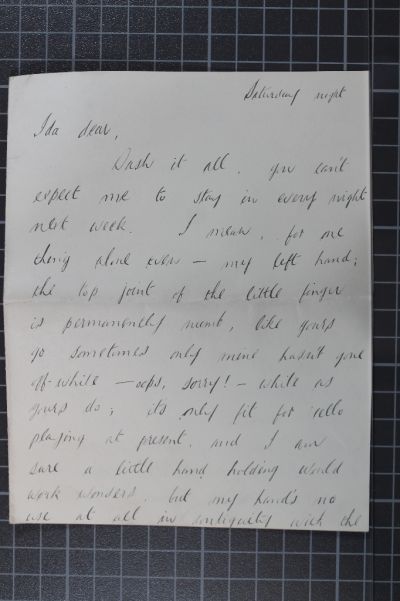 Saturday night
Ida dear,
Dash it all, you can't
expect me to stay in every night
next week. I mean, for one
thing alone even – my left hand;
the top joint of the little finger
is permanently numb, like yours
go sometimes only mine hasn't gone
off-white – oops, sorry! – white as
yours do; its only fit for 'cello
playing at present, and I am
sure a little hand holding would
work wonders, but my hand's no
use at all in contiguity with the